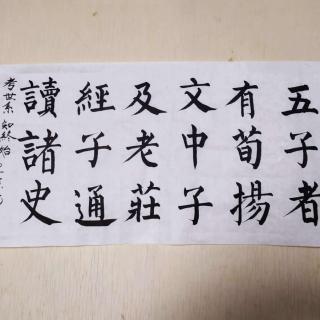 五子者
有荀揚
文中子
及老莊
經子通
讀諸史
考世系 知終始